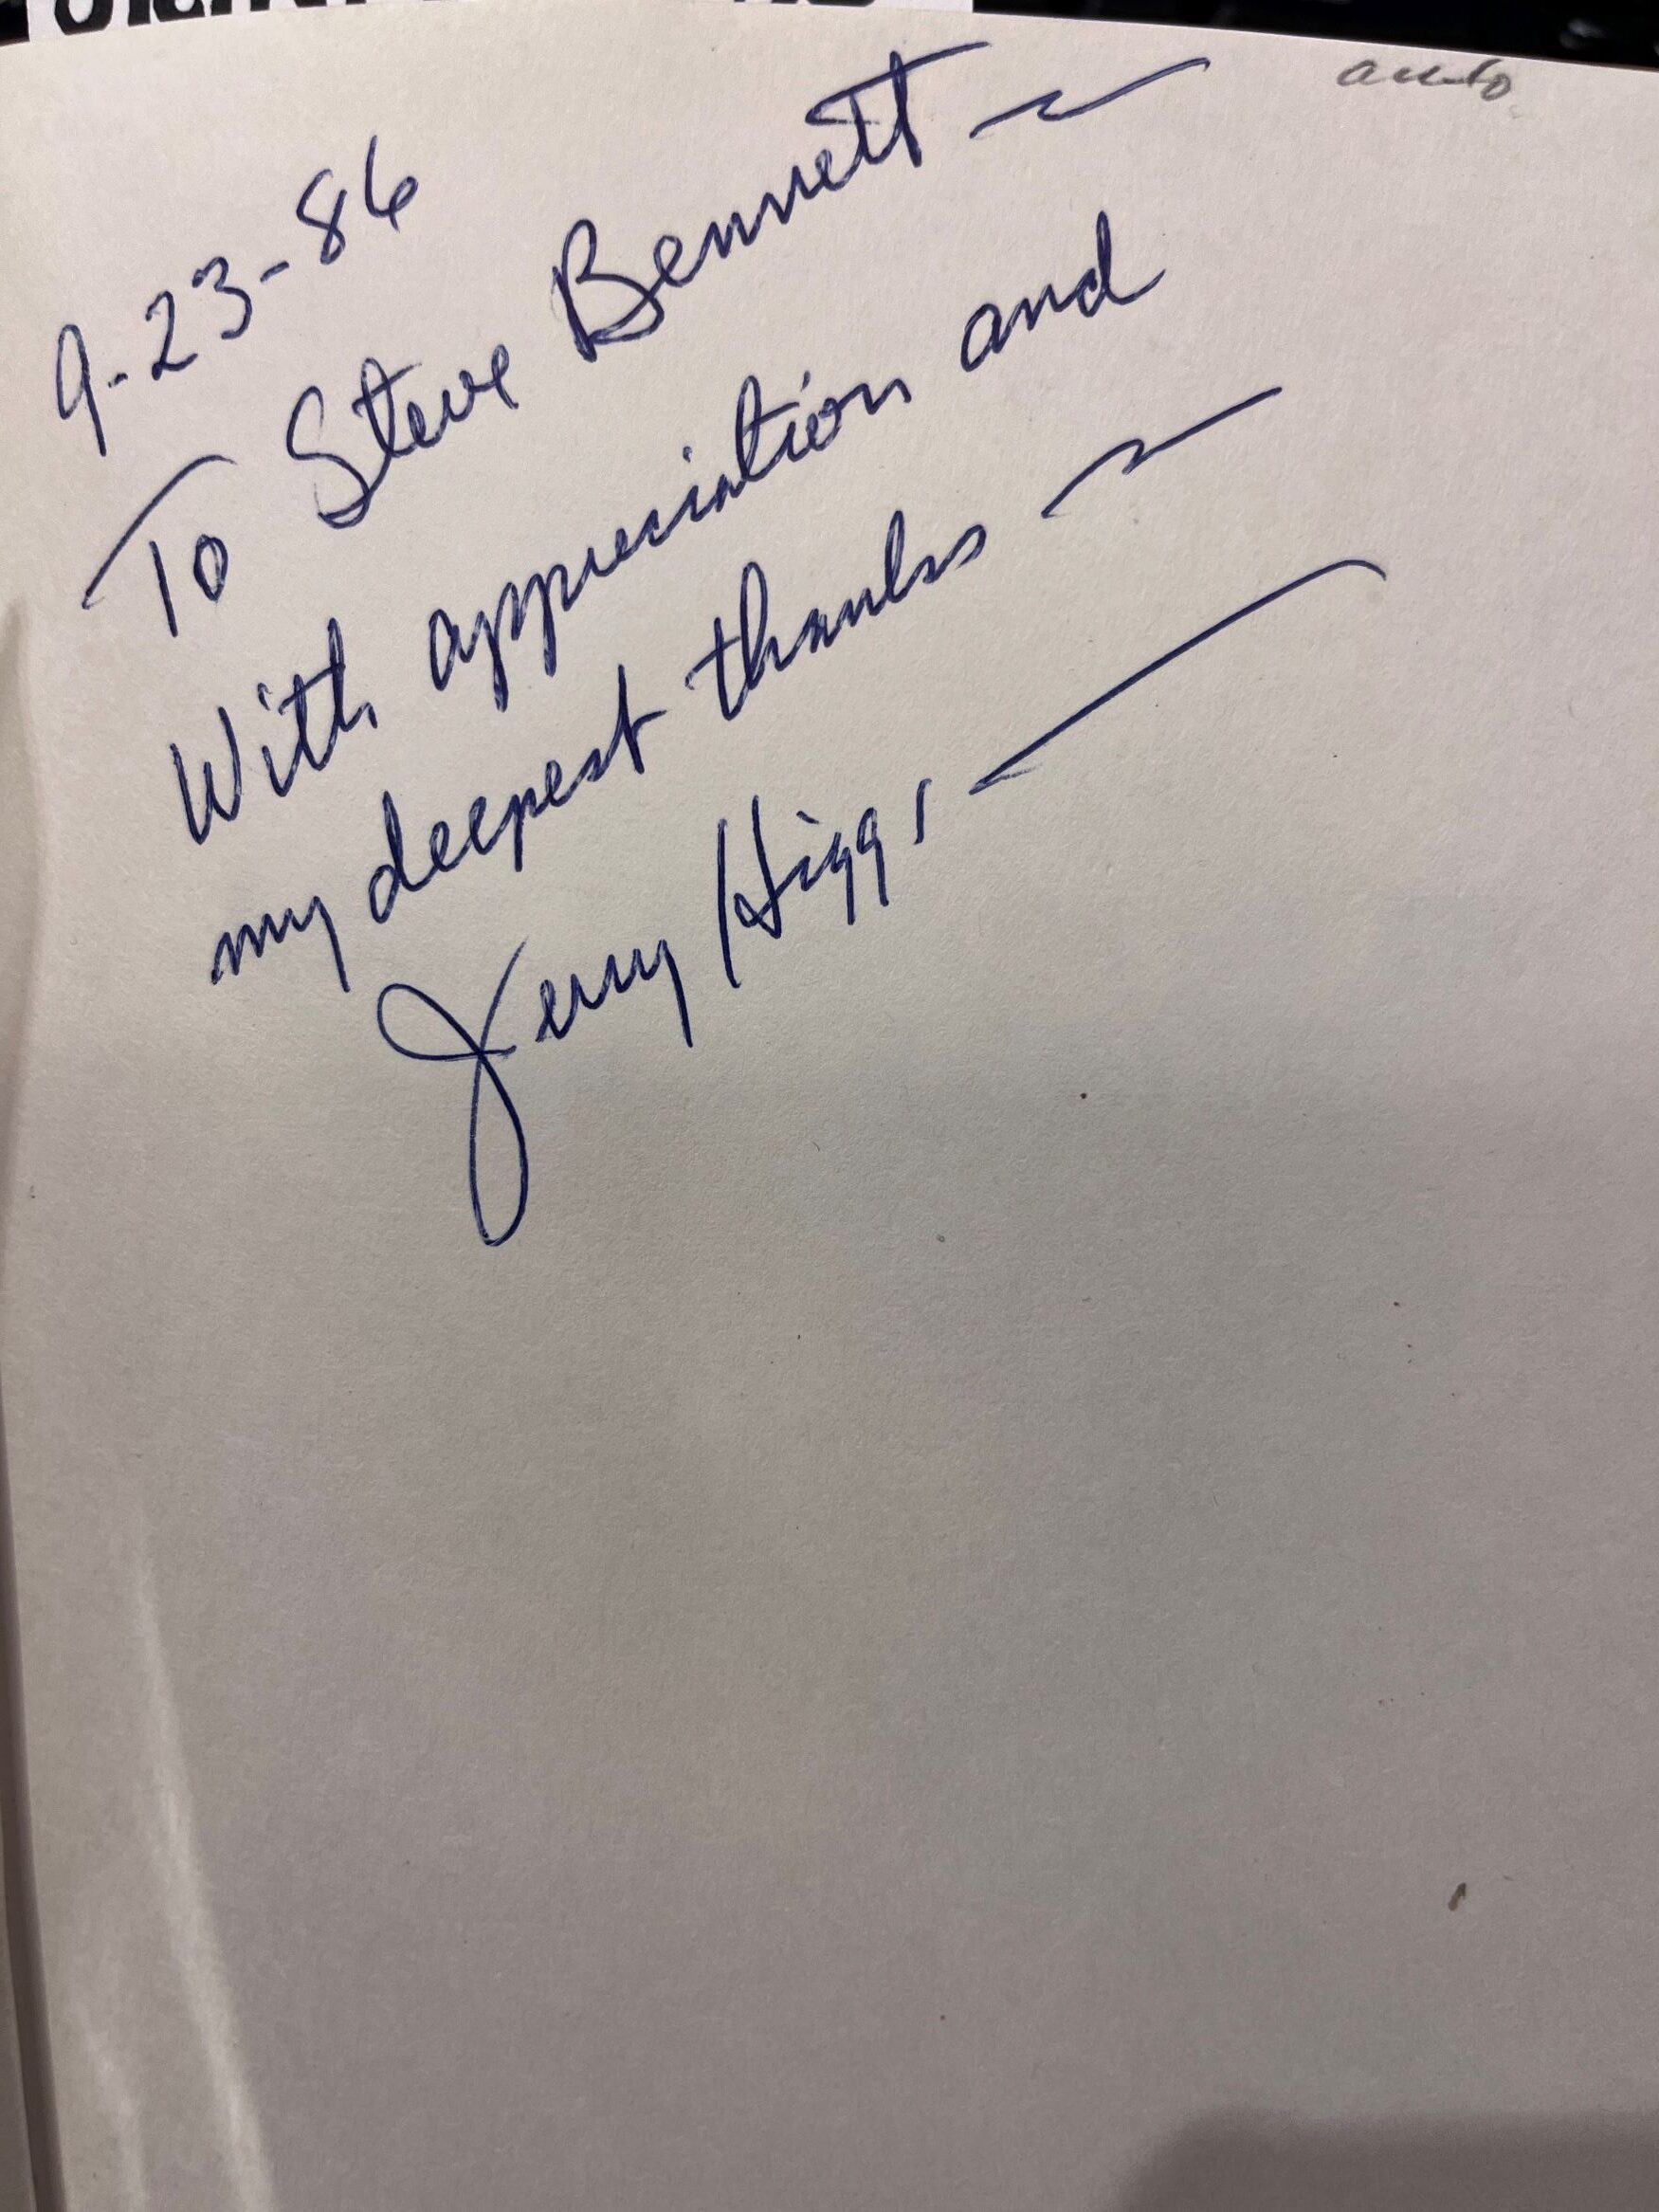 auto
9-23-86
To Steve Bennett ~
With appreciation and
my deepest thanks ~
Jerry Higgs —